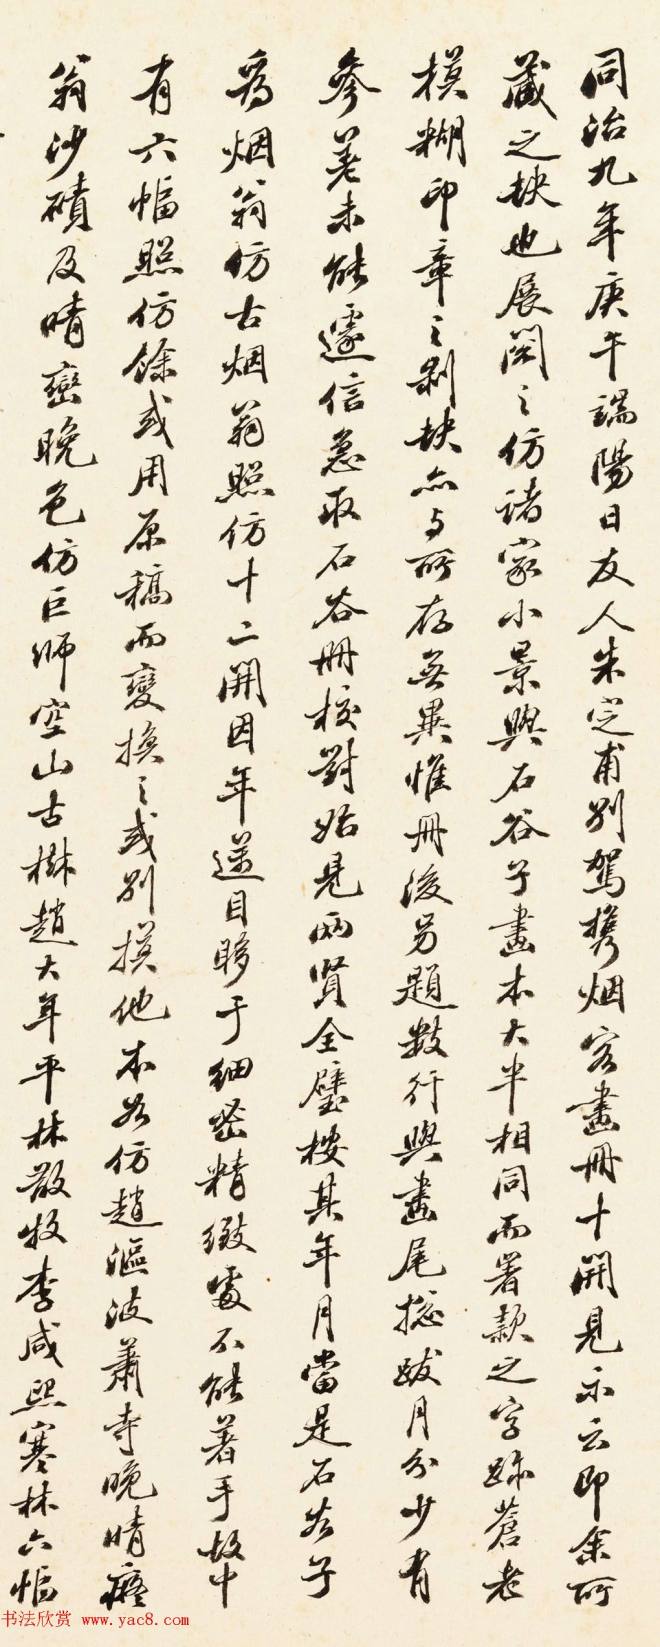 同治九年庚午端陽日友人朱定甫別駕携烟客畫冊十開見示云即余所
藏之缺也展閱之仿諸家小景與石谷子畫本大半相同而署款之字跡蒼老
模糊印章之剥缺亦与所存無異惟冊後另題數行與畫尾總跋月分少有
參差未能遽信急取石谷冊校對始見兩賢全璧按其年月當是石谷子
為烟翁仿古烟翁照仿十二開因年逆目眵于細密精緻處不能著手故中
有六幅照仿餘或用原稿而變換之或別摸他本如仿趙漚波蕭寺晚晴癡
翁沙磧及晴巒晚色仿巨師空山古樹趙大年平林散牧李咸熙寒林六幅
书法欣赏 www.yac8.com